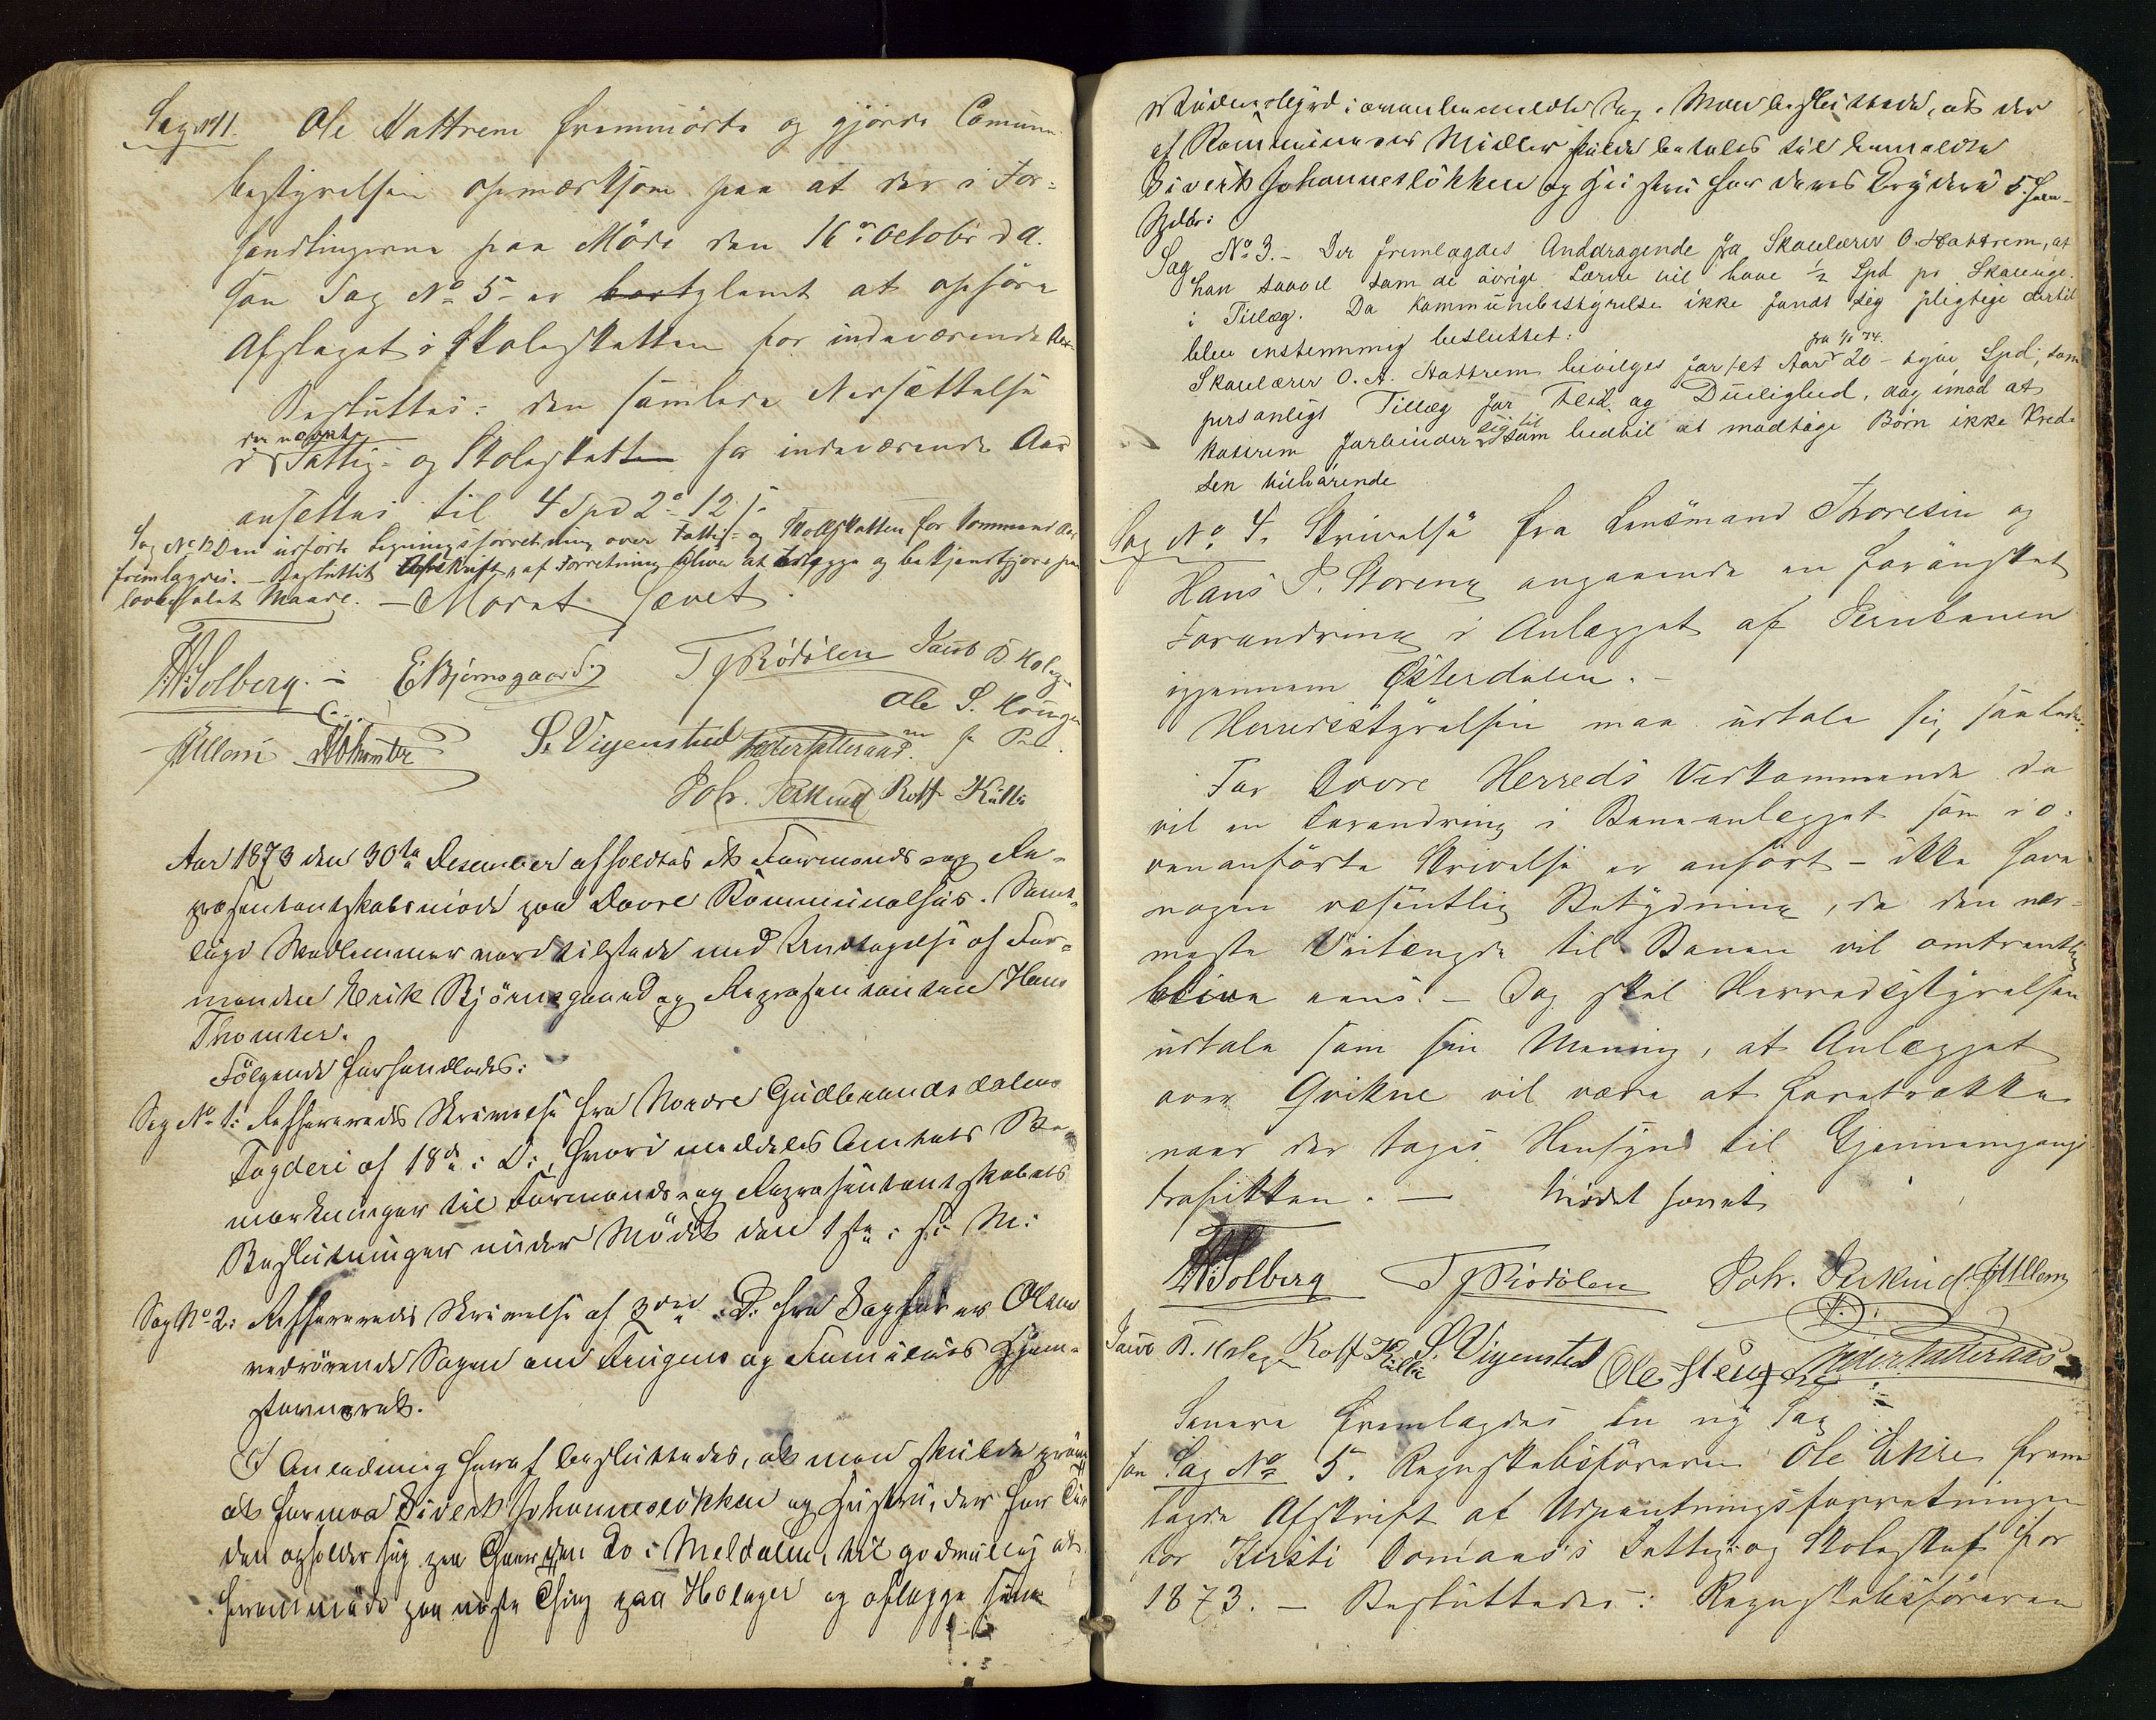 Sag N 11. Ole Hattrem fremmödte og gjorde Commune-
bestyrelsen opmærksom paa at der i For-
handlingerne paa Møde den 16de October d A.
som Sag No 5 er bort glemt at opføre
Afslaget i Skoleskatten for indeværende Aar.
Besluttes: den samlede Nedsættelse
den nævnte
i Fattig- og Skoleskatten for indeværende Aar
ansættes til 4 Spd 2 12 s
Sag No 12 Den udførte Ligningsforretning over Fattig- og Skolskatten for kommende Aar
fremlagdes. - Besluttet Afskrift af Forretning bliver at udlægge og bekjendtgjøre paa
lovbefalet Maade. - Mødet hævet.
H Solberg. E Bjørnsgaard T J Rödölen Jacob B Holager
Ole S. Hougen
J Ullern H Thomter S. Vigenstad Peder Hatteraas
Joh. Perkind Rolff Küllie
Aar 1873 den 30te Desember afholdtes et Formands- og Re-
præsentantskabsmöde paa Dovre Kommunalhus. Samt-
lige Medlemmer vare tilstede med Undtagelse af For-
manden Erik Bjørnsgaard og Repræsentanten Hans
Thomter.
Følgende forhandledes:
Sag No 1: Reffereredes Skrivelse fra Nordre Gudbrandsdalens
Fogderi af 18de i D:, hvori meddeles Amtets Be-
mærkninger til Formands- og Repræsentantskabets
Beslutninger under Mödet den 1ste i f: M:
Sag No 2: Reffereredes Skrivelse af 3die D: fra Sagförer Olsen
vedrörende Sagen om Drengens og Families Hjem-
stavnsret.
I Anledning heraf besluttedes, at man skulde pröve
at formaa Siverk Johanneslökken og Hustru, der for Tiden
den opholder sig paa Gaarden Lo i Meldalen, til godvillig at
fremmöde paa næste Thing paa Holager og aflægge sine
Vidnesbyrd i ovenbemeldte Sag. Man besluttede, at der
af Kommunens Midler skulde betales til bemeldte
Siverk Johanneslökken og Hustru for deres Bryderi 5 fem
Spdlr:
Sag No 3. - Der fremlagdes Anddragende fra Skolelærer O. Hattrem, at
han saavel som de øvrige Lærere vil have 1/2 Spd pr Skoleuge
i Tillæg. Da Kommunebestyrelse ikke fandt sig pligtige dertil
blev enstemmig besluttet:
fra 1/1 74.
Skolelærer O. A. Hattrem bevilges for et Aar 20 - tyve Spd; som
personligt Tillæg for Flid og Duelighed, dog imod at
Hattrem forbinder sig til som hedtil at modtage Børn ikke Kred-
sen tilhørende
Sag No 4. Skrivelse fra Lensmand Thoresen og
Hans P. Storeng angaaende en forønsket
Forandring i Anlægget af Jernbanen
igjennem Østerdalen. -
Herredsstyrelsen maa udtale sig saaledes:
For Dovre Herreds Vedkommende da
vil en Forandring i Baneanlægget som i o-
venanførte Skrivelse er anført - ikke have
nogen væsentlig Betydning, da den nær-
meste Veilængde til Banen vil omtrentlig
blive eens. - Dog skal Herredsstyrelsen
udtale som sin Mening, at Anlægget
over Qvikne vil være at foretrække
naar der tages Hensyn til Gjennemgangs-
trafikken. - Mødet hævet
H Solberg T J Rödölen Joh. Perkind J Ullern
Jacob B. Holager Rolff Küllie S. Vigensted Ole Hougen Peder Hatteraas
Senere fremlagdes en ny Sag
som Sag No 5. Regnskabsföreren Ole Ekre frem-
lagde Afskrift af Udpantningsforretningen
for Kirsti Domaas's Fattig- og Skoleskat for
1873. - Besluttedes: Regnskabsföreren